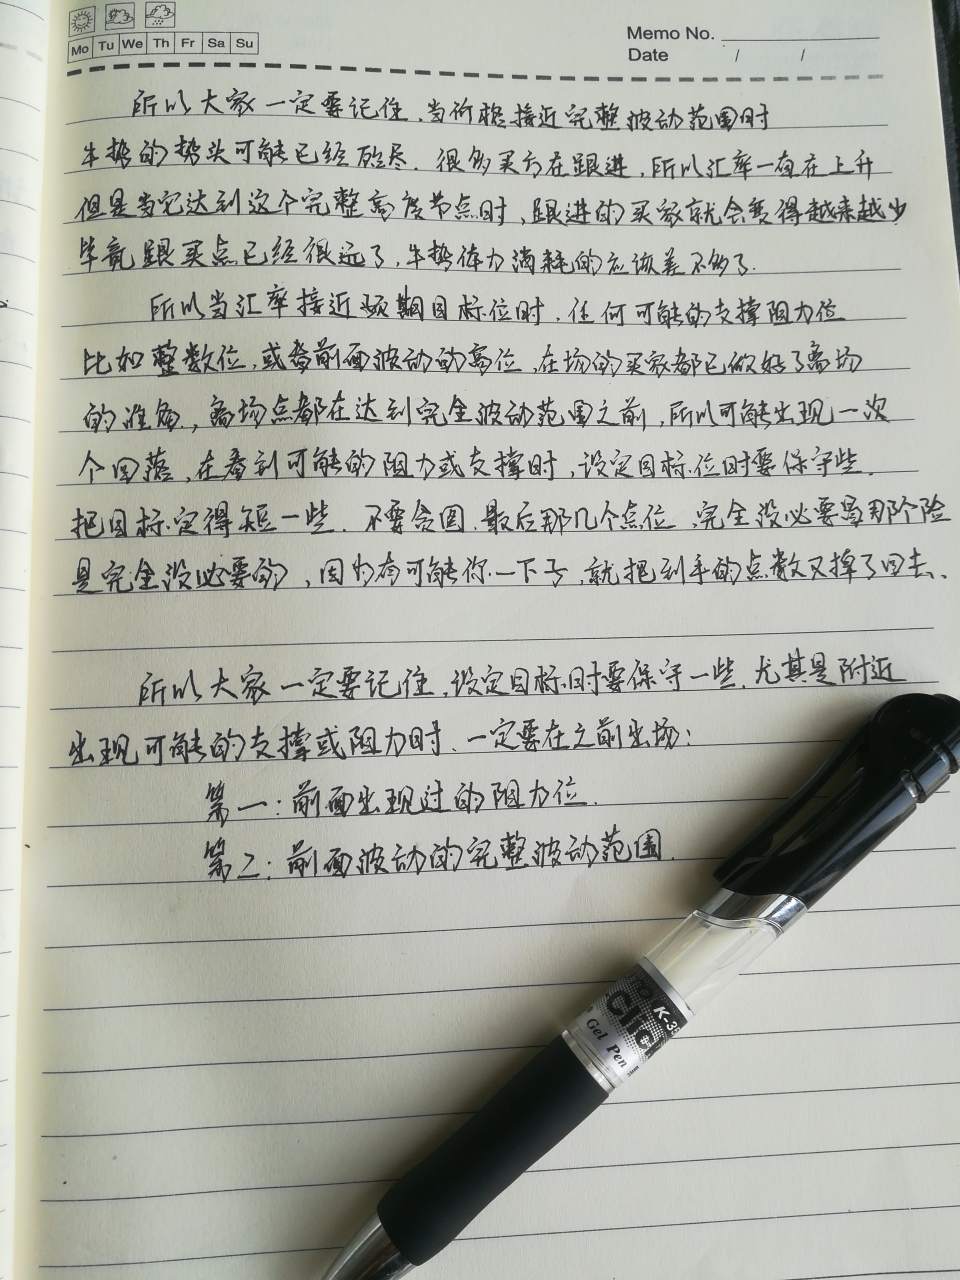 Memo No.
Mo Tu We Th Fr Sa Su
Date / /
所以大家一定要记住,当价格接近完整波动范围时
牛势的势头可能已经殆尽.很多买方在跟进,所以汇率一直在上升
但是当它达到这个完整高度节点时,跟进的买家就会变得越来越少
毕竟跟买点已经很远了,牛势体力消耗的应该差不多了.
所以当汇率接近预期目标位时.任何可能的支撑阻力位
比如整数位,或者前面波动的高位,在场的买家都已做好了离场
的准备,离场点都在达到完全波动范围之前,所以可能出现一次
个回落,在看到可能的阻力或支撑时,设定目标位时要保守些.
把目标定得短一些.不要贪图.最后那几个点位、完全没必要冒那个险
是完全没必要的,因为有可能你一下子,就把到手的点数又掉了回去、
所以大家一定要记住,设定目标时要保守一些.尤其是附近
出现可能的支撑或阻力时、一定要在之前出场:
第一:前面出现过的阻力位.
第二:前面波动的完整波动范围.
K-35
Gel Pen